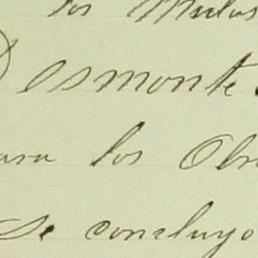 los Mulos
Desmonte
para los Obr
Se concluyo